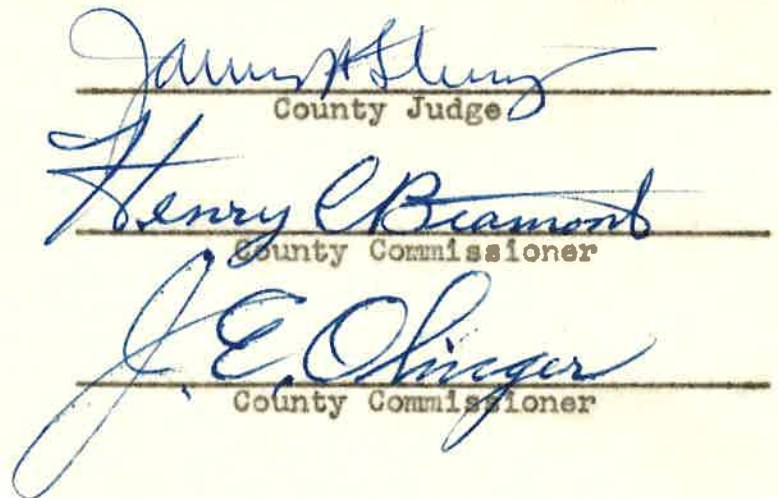 James H
County Judge
Henry C Beamont
County Commissioner
J. E. Olinger
County Commissioner